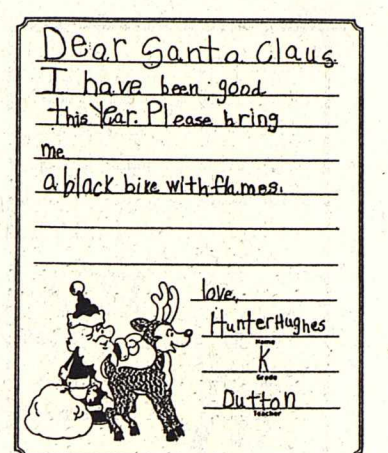 Dear Santa Claus
I have been good
this Year. Please bring
me
a black bike with flames.
love,
Hunter Hughes
Name
K
Grade
Dutton
Teacher